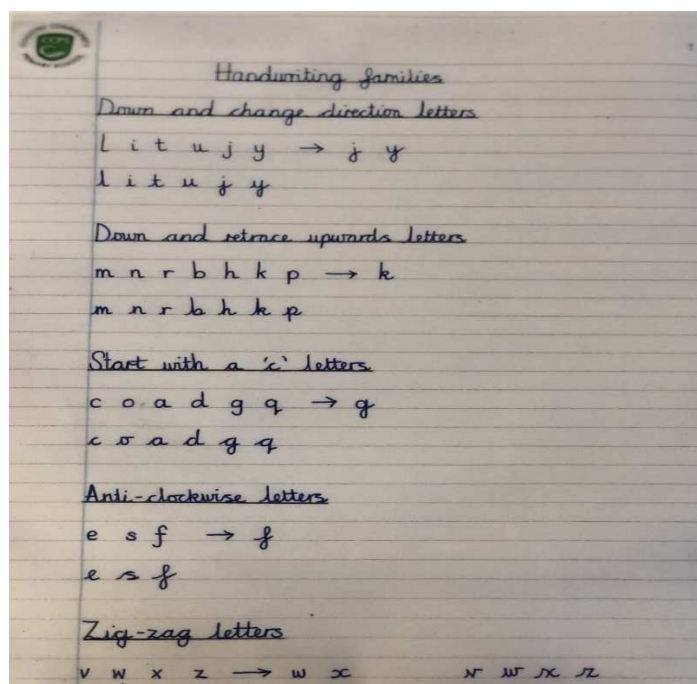 CCPS
Handwriting families
Down and change direction letters
l i t u j y → j y
l i t u j y
Down and retrace upwards letters
m n r b h k p → k
m n r b h k p
Start with a 'c' letters
c o a d g q → g
c o a d g q
Anti-clockwise letters
e s f → f
e s f
Zig-zag letters
v w x z → w x v w x z